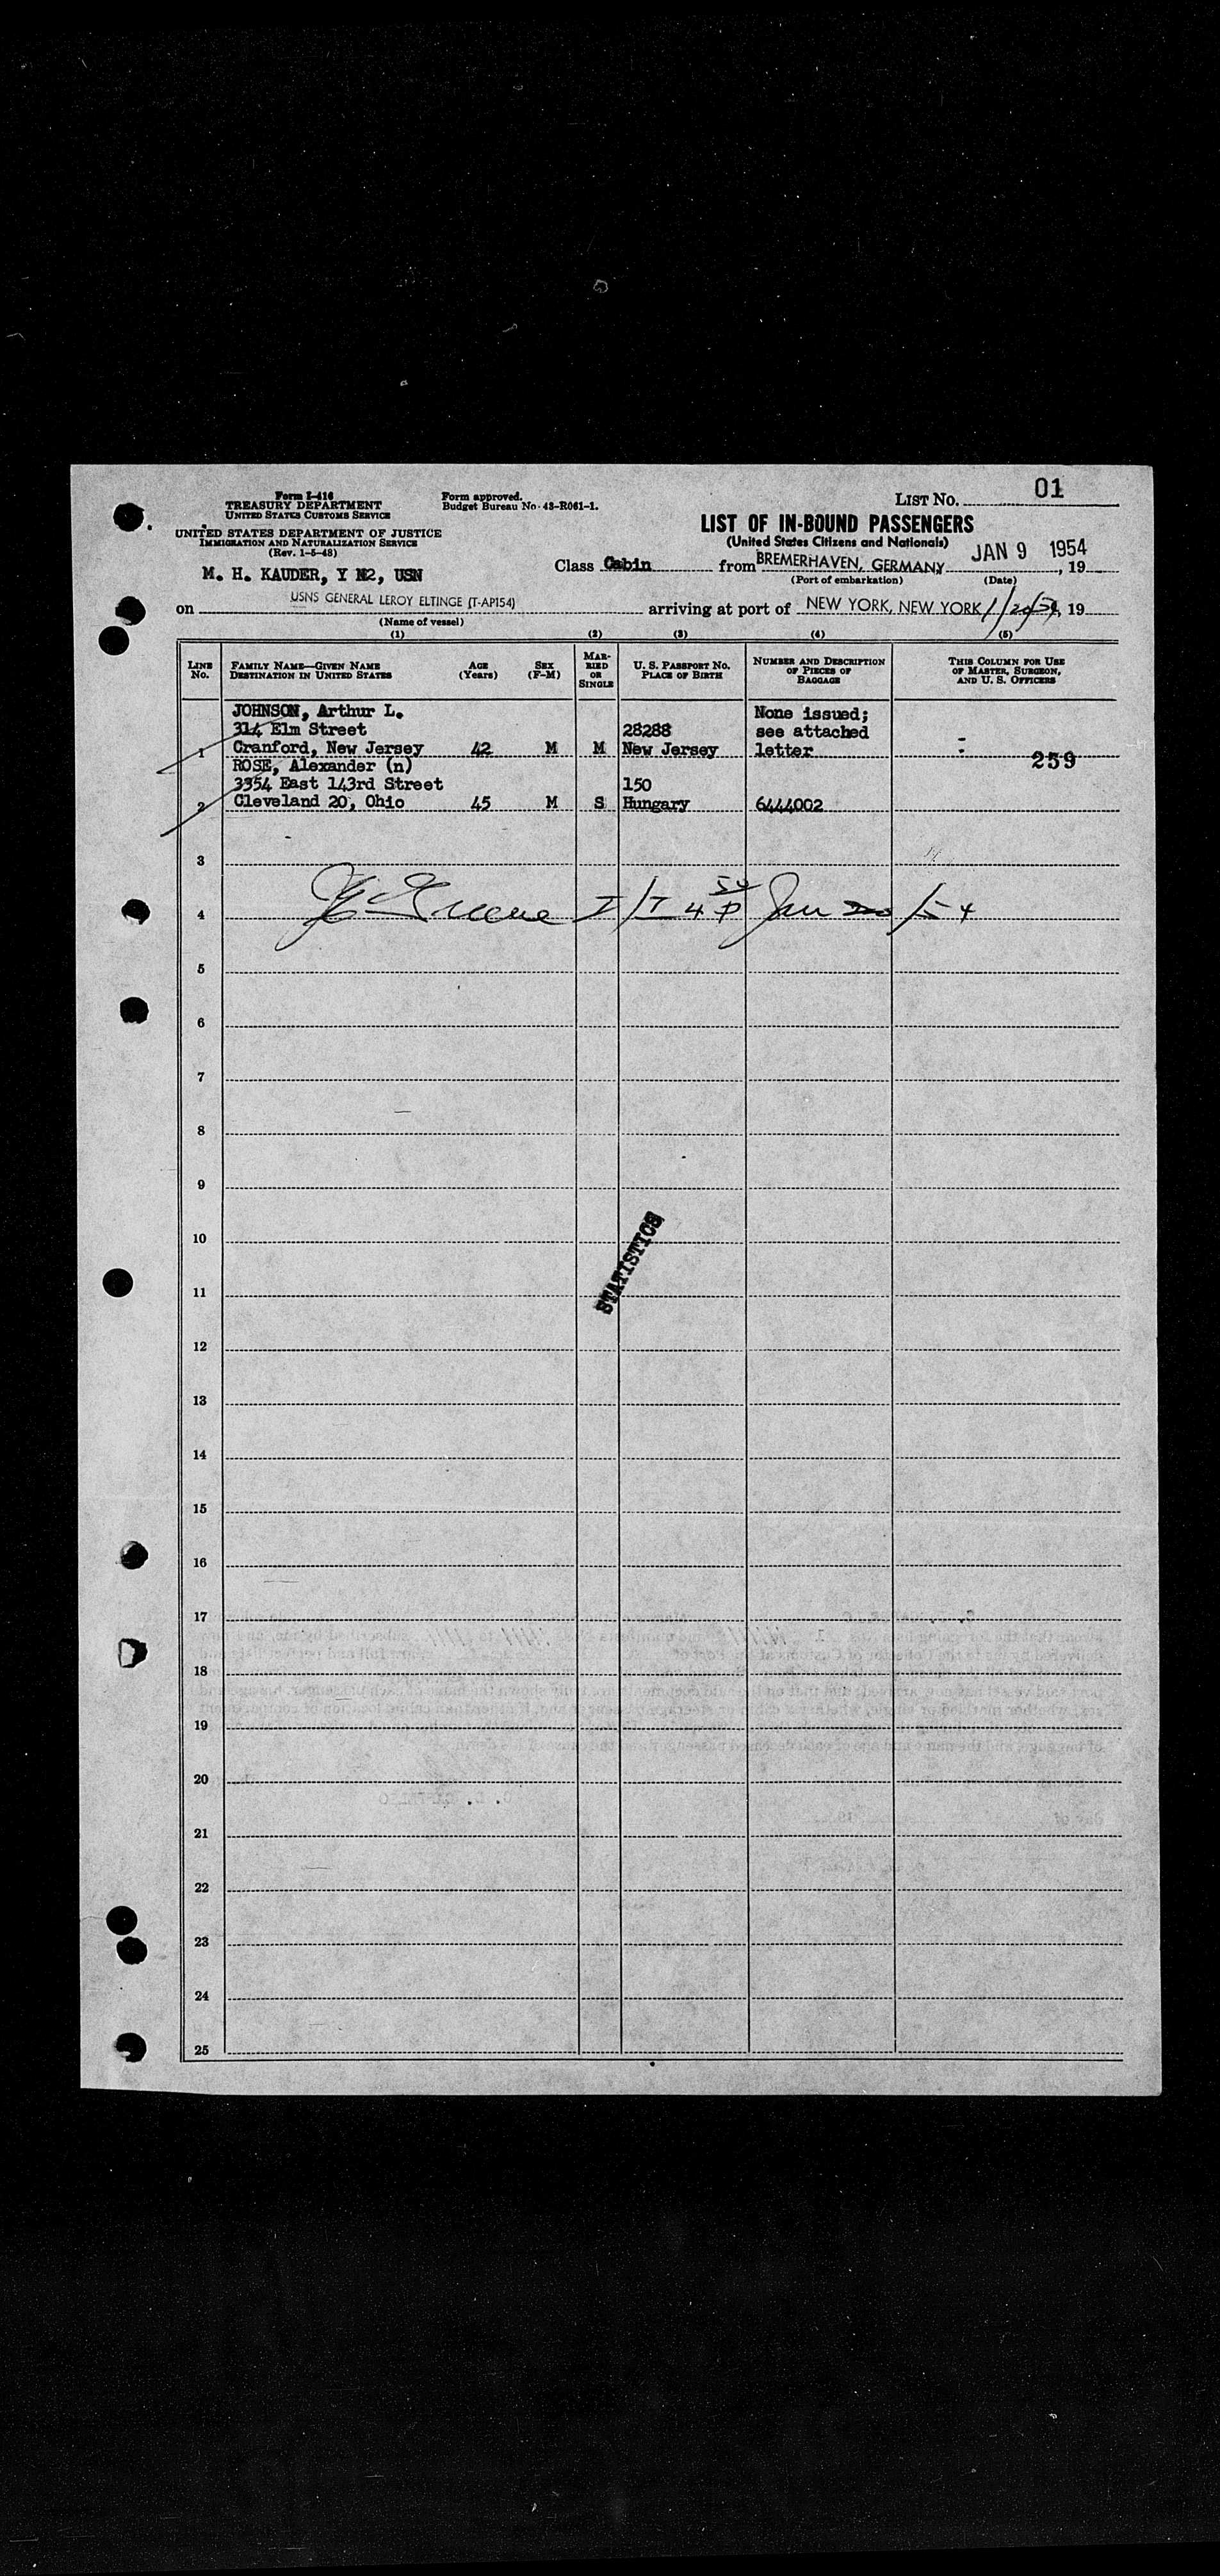 Form I-416
TREASURY DEPARTMENT
UNITED STATES CUSTOMS SERVICE
UNITED STATES DEPARTMENT OF JUSTICE
IMMIGRATION AND NATURALIZATION SERVICE
(Rev. 1-5-48)
Form approved.
Budget Bureau No. 43-R061-1.
LIST No. 01
LIST OF IN-BOUND PASSENGERS
(United States Citizens and Nationals)
M. H. KAUDER, Y N2, USN
Class Cabin from BREMERHAVEN, GERMANY, JAN 9 1954, 19
(Port of embarkation) (Date)
on USNS GENERAL LEROY ELTINGE (T-AP154) arriving at port of NEW YORK, NEW YORK 1/20/54, 19
(Name of vessel)
(1) (2) (3) (4) (5)
LINE No. FAMILY NAME—GIVEN NAME DESTINATION IN UNITED STATES AGE (Years) SEX (F-M) MARRIED OR SINGLE U. S. PASSPORT No. PLACE OF BIRTH NUMBER AND DESCRIPTION OF PIECES OF BAGGAGE THIS COLUMN FOR USE OF MASTER, SURGEON, AND U. S. OFFICERS
JOHNSON, Arthur L. None issued;
314 Elm Street 28288 see attached
1 Cranford, New Jersey 42 M M New Jersey letter 259
ROSE, Alexander (n)
3354 East 143rd Street 150
2 Cleveland 20, Ohio 45 M S Hungary 6444002
3
4 Greene Jan 20/54
5
6
7
8
9
10
STATISTICS
11
12
13
14
15
16
17
18
19
20
21
22
23
24
25